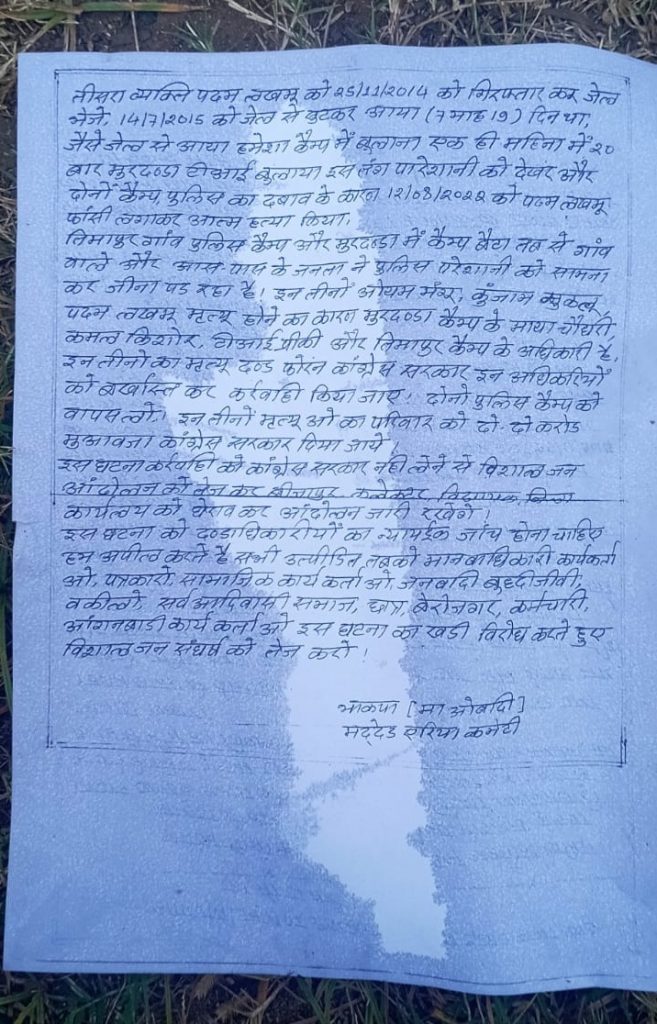 तीसरा व्यक्ति पदम लखमू को 25/11/2014 को गिरफ्तार कर जेल
भेजे, 14/7/2015 को जेल से छुटकर आया (7 माह 19) दिन था,
जैसे जेल से आया हमेशा कैम्प में बुलाना एक ही महिना में 20
बार मुरदण्डा टीआई बुलाया इस तंग पारेशानी को देखर और
दोनों कैम्प पुलिस का दबाव के कारन 12/08/2022 को पदम लखमू
फांसी लगाकर आत्म हत्या किया,
तिमापुर गांव पुलिस कैम्प और मुरदण्डा में कैम्प बैठा तब से गांव
वाले और आस-पास के जनता ने पुलिस परेशानी को सामना
कर जीना पड़ रहा है! इन तीनों ओयम मंगू, कुंजाम सुकलू,
पदम लखमू मृत्यू होने का कारण मुरदण्डा कैम्प के माया चौधरी
कमल किशोर, टीआई पींकी और तिमापुर कैम्प के अधिकारी है,
इन तीनों का मृत्यू दण्ड फोरन कांग्रेस सरकार इन अधिकारिओं
को बर्खास्त कर कर्रवाही किया जाए! दोनों पुलिस कैम्प को
वापस लो, इन तीनों मृत्यू ओं का परिवार को दो-दो करोड
मुआवजा कांग्रेस सरकार दिया जाये,
इस घटना कर्रवाहि को कांग्रेस सरकार नहीं लेने से विशाल जन
आंदोलन को तेज कर बीजापुर कलेक्टर, विदायक, जिला
कार्यलय को घेराव कर आंदोलन जारी रखेंगे!
इस घटना को दण्डाधिकारीयों का न्यायईक जांच होना चाहिए
हम अपील करते है सभी उत्पीडित तबको मानवाधिकारी कार्यकर्ता
ओ, पत्रकारो, सामाजिक कार्य कर्ता ओ, जनवादी बुध्दीजीवी,
वकीलो, सर्व आदिवासी समाज, छात्र, बेरोजगर, कर्मचारी,
आंगनबाडी कार्य कर्ता ओ इस घटना का खडी विरोध करते हुए
विशाल जन संघर्ष को तेज करो!
भाकपा [माओबादी]
मद्देड एरिया कमेटी